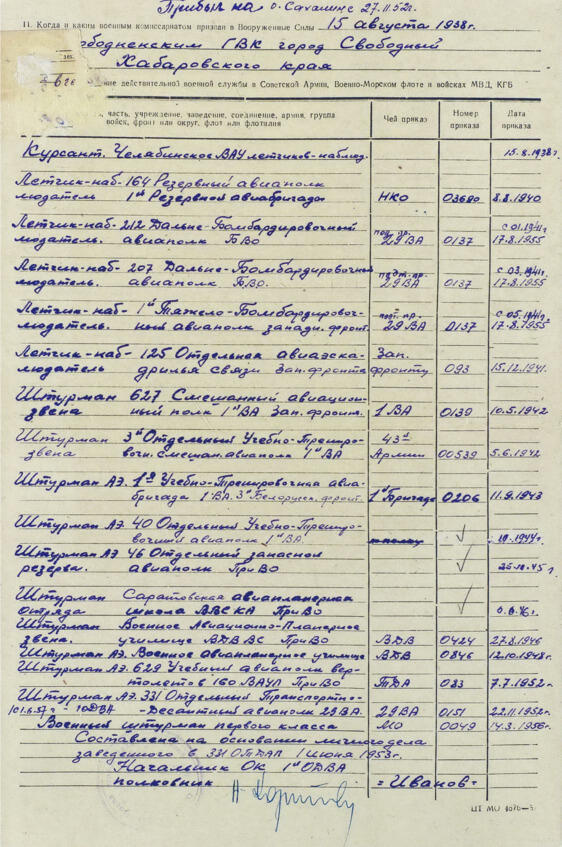 Прибыл на о. Сахалине 27.11.52г.
11. Когда и каким военным комиссариатом призван в Вооруженные Силы 15 августа 1938г.
ободненским ГВК город Свободный
Хабаровского края
ние действительной военной службы в Советской Армии, Военно-Морском флоте и войсках МВД, КГБ
, часть, учреждение, заведение, соединение, армия, группа войск, фронт или округ, флот или флотилия
Чей приказ
Номер приказа
Дата приказа
Курсант. Челябинское ВАУ летчиков-наблюд. 15.8.1938г
Летчик-наб- 164 Резервный авиаполк
людатель 1й Резервной авиабригады НКО 03680 8.8.1940
Летчик-наб- 212 Дальне-Бомбардировочный с 01.1941г
людатель. авиаполк БВО 29 ВА 0137 17.8.1955
Летчик-наб- 207 Дальне-Бомбардировочный с 03.1941г
людатель. авиаполк БВО. 29 ВА 0137 17.8.1955
Летчик-наб- 1й Тяжело-Бомбардировоч- с 05.1941г
людатель. ный авиаполк западн. фронт. 29 ВА 0137 17.8.1955
Летчик-наб- 125 Отдельная авиаэска- Зап.
людатель дрилья связи Зап. фронта фронту 093 15.12.1941.
Штурман 627 Смешанный авиацион-
звена ный полк 1й ВА Зап. фронт. 1 ВА 0139 10.5.1942
Штурман 3й Отдельный Учебно-Трениро- 43й
звена вочн. смешан. авиаполк 1й ВА Армии 00539 5.6.1942
Штурман АЭ. 1я Учебно-Тренировочная авиа-
бригада 1 ВА. 3й Белорусск. фронт. 1й Бригаде 0206 11.9.1943
Штурман АЭ. 40 Отдельный Учебно-Трениро-
вочный авиаполк 1й ВА. 1944г.
Штурман АЭ 46 Отдельный запасной
резерва. авиаполк ПриВО 25.10.45г
Штурман Саратовская авиапланерная
отряда школа ВВС КА ПриВО
Штурман Военное Авиационно-Планерное
звена. училище ВДВ ВС ПриВО ВДВ 0424 27.8.1946
Штурман АЭ. Военное авиапланерное училище ВДВ 0846 12.10.1948г.
Штурман АЭ. 629 Учебный авиаполк вер-
толетов 160 ВАУЛ ПриВО ТДА 083 7.7.1952г
Штурман АЭ. 331 Отдельный Транспортно-
-Десантный авиаполк 29 ВА. 29 ВА 0151 22.11.1952г
Военный штурман первого класса МО 0049 14.3.1956г.
Составлена на основании личного дела
заведенного в 331 ОТДАП 1 июня 1953г.
Начальник ОК 1й ОДВА
полковник = Иванов =